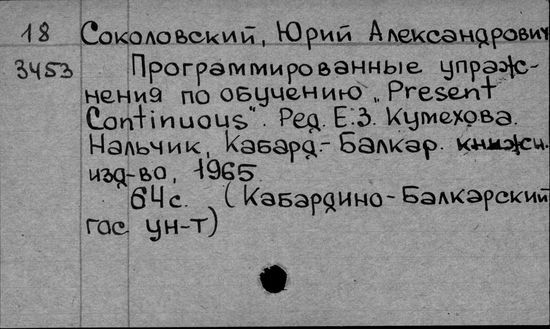 18 Соколовский, Юрий Александрович
3453 Программированные упраж-
нения по обучению „Present
Continuous". Ред. Е.З. Кумехова.
Нальчик, Кабард.-Балкар. книжн.
изд-во, 1965.
64с. (Кабардино-Балкарский
гос ун-т)